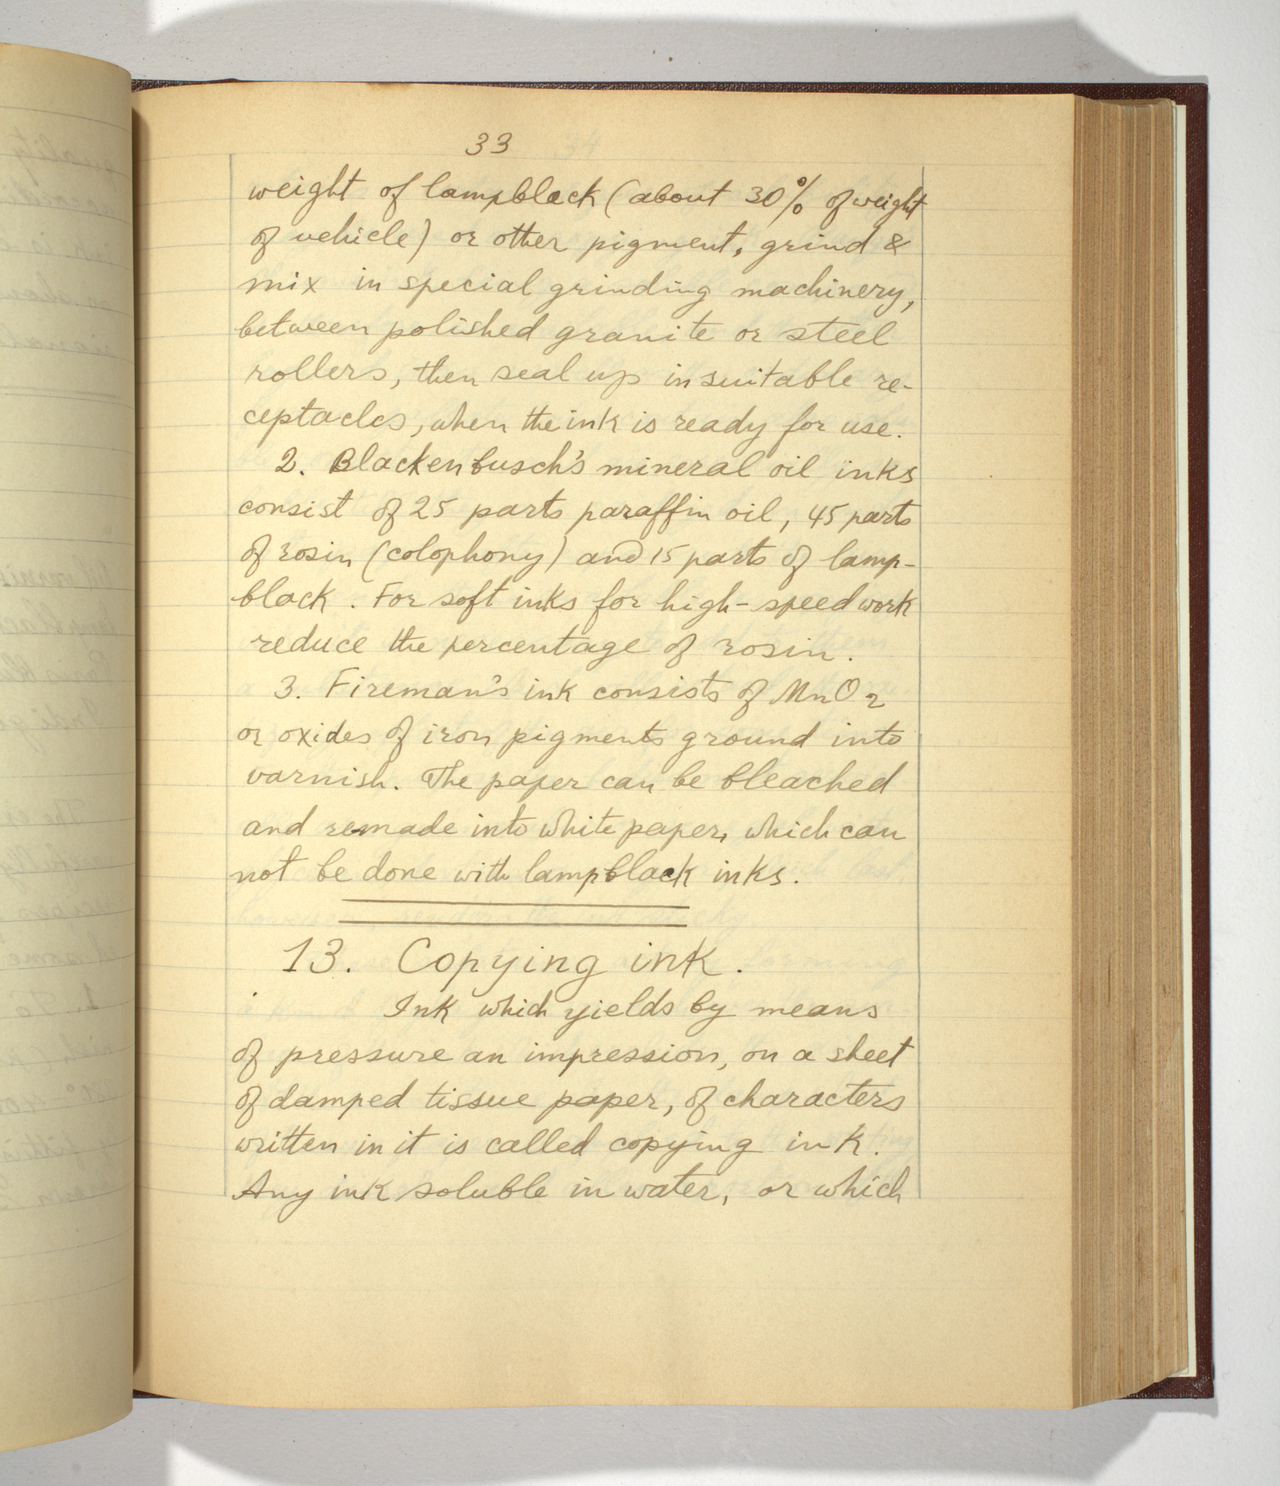 33
weight of lampblack (about 30% of weight
of vehicle) or other pigment, grind &
mix in special grinding machinery,
between polished granite or steel
rollers, then seal up in suitable re-
ceptacles, when the ink is ready for use.
2. Blackenbusch's mineral oil inks
consist of 25 parts paraffin oil, 45 parts
of rosin (colophony) and 15 parts of lamp-
black. For soft inks for high-speed work
reduce the percentage of rosin.
3. Fireman's ink consists of MnO2
or oxides of iron pigments ground into
varnish. The paper can be bleached
and remade into white paper, which can
not be done with lampblack inks.
13. Copying ink.
Ink which yields by means
of pressure an impression, on a sheet
of damped tissue paper, of characters
written in it is called copying ink.
Any ink soluble in water, or which